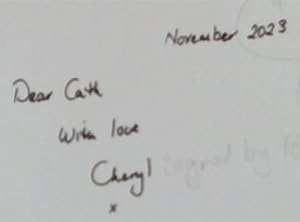 November 2023
Dear Cath
With love
Cheryl
x